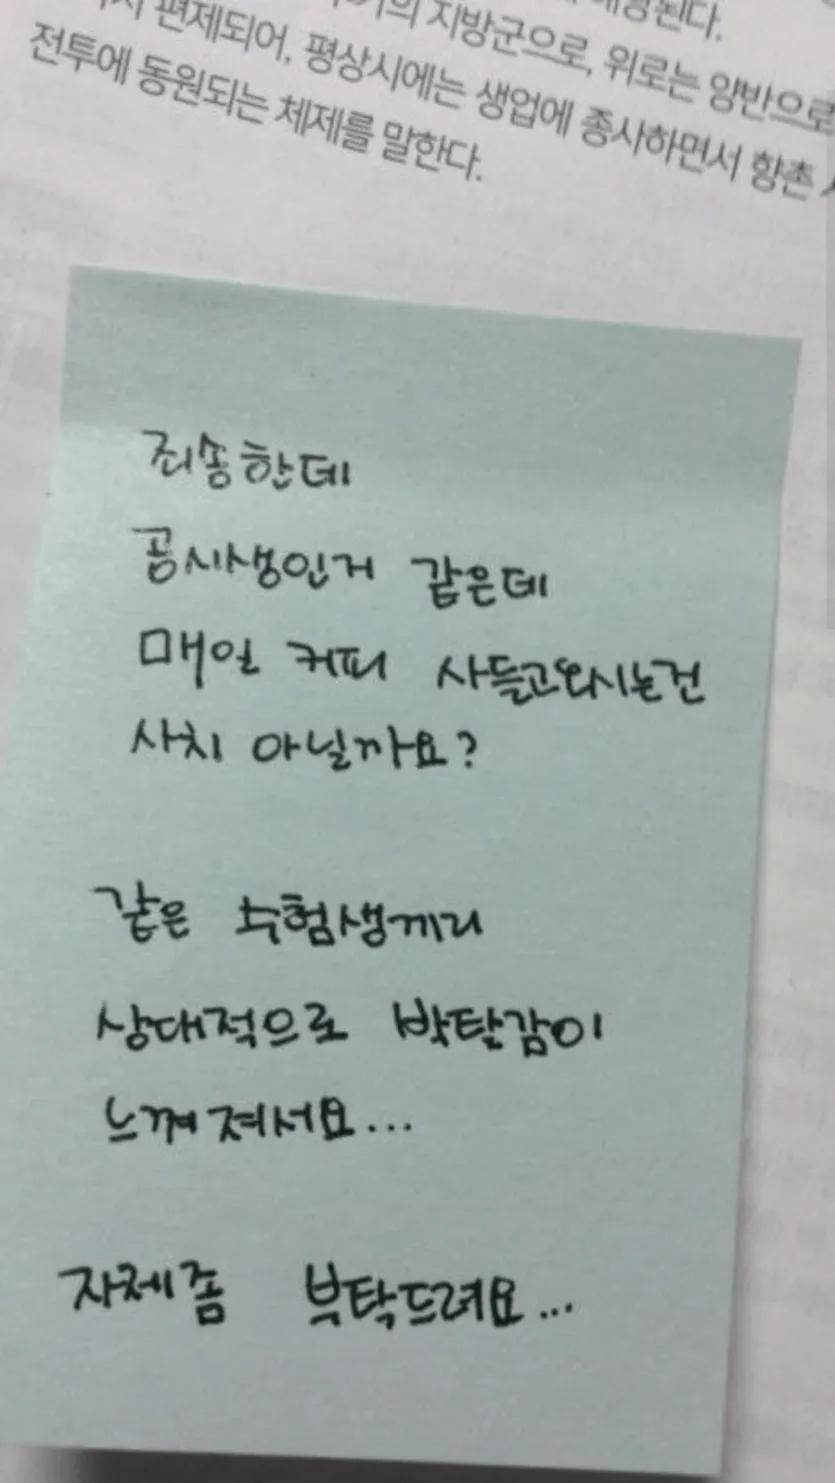 의 지방군으로, 위로는 양반으로
편제되어, 평상시에는 생업에 종사하면서 향촌
전투에 동원되는 체제를 말한다.
죄송한데
공시생인거 같은데
매일 커피 사들고와시는건
사치 아닐까요?
같은 수험생끼리
상대적으로 박탈감이
느껴져서요...
자제좀 부탁드려요...